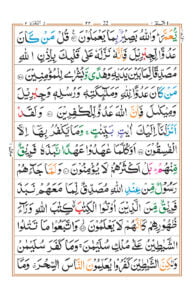 يُّعَمَّرَ ؕ وَاللّٰهُ بَصِيْرٌۢ بِمَا يَعْمَلُوْنَ قُلْ مَنْ كَانَ
عَدُوًّا لِّجِبْرِيْلَ فَاِنَّهٗ نَزَّلَهٗ عَلٰى قَلْبِكَ بِاِذْنِ اللّٰهِ
مُصَدِّقًا لِّمَا بَيْنَ يَدَيْهِ وَهُدًى وَّبُشْرٰى لِلْمُؤْمِنِيْنَ
مَنْ كَانَ عَدُوًّا لِّلّٰهِ وَمَلٰٓئِكَتِهٖ وَرُسُلِهٖ وَجِبْرِيْلَ
وَمِيْكٰىلَ فَاِنَّ اللّٰهَ عَدُوٌّ لِّلْكٰفِرِيْنَ وَلَقَدْ
اَنْزَلْنَاۤ اِلَيْكَ اٰيٰتٍۢ بَيِّنٰتٍ ۚ وَمَا يَكْفُرُ بِهَاۤ اِلَّا
الْفٰسِقُوْنَ اَوَكُلَّمَا عٰهَدُوْا عَهْدًا نَّبَذَهٗ فَرِيْقٌ
مِّنْهُمْ ؕ بَلْ اَكْثَرُهُمْ لَا يُؤْمِنُوْنَ وَلَمَّا جَآءَهُمْ
رَسُوْلٌ مِّنْ عِنْدِ اللّٰهِ مُصَدِّقٌ لِّمَا مَعَهُمْ نَبَذَ
فَرِيْقٌ مِّنَ الَّذِيْنَ اُوْتُوا الْكِتٰبَ كِتٰبَ اللّٰهِ وَرَآءَ
ظُهُوْرِهِمْ كَاَنَّهُمْ لَا يَعْلَمُوْنَ وَاتَّبَعُوْا مَا تَتْلُوا
الشَّيٰطِيْنُ عَلٰى مُلْكِ سُلَيْمٰنَ ۚ وَمَا كَفَرَ سُلَيْمٰنُ
وَلٰكِنَّ الشَّيٰطِيْنَ كَفَرُوْا يُعَلِّمُوْنَ النَّاسَ السِّحْرَ ۗ وَمَاۤ